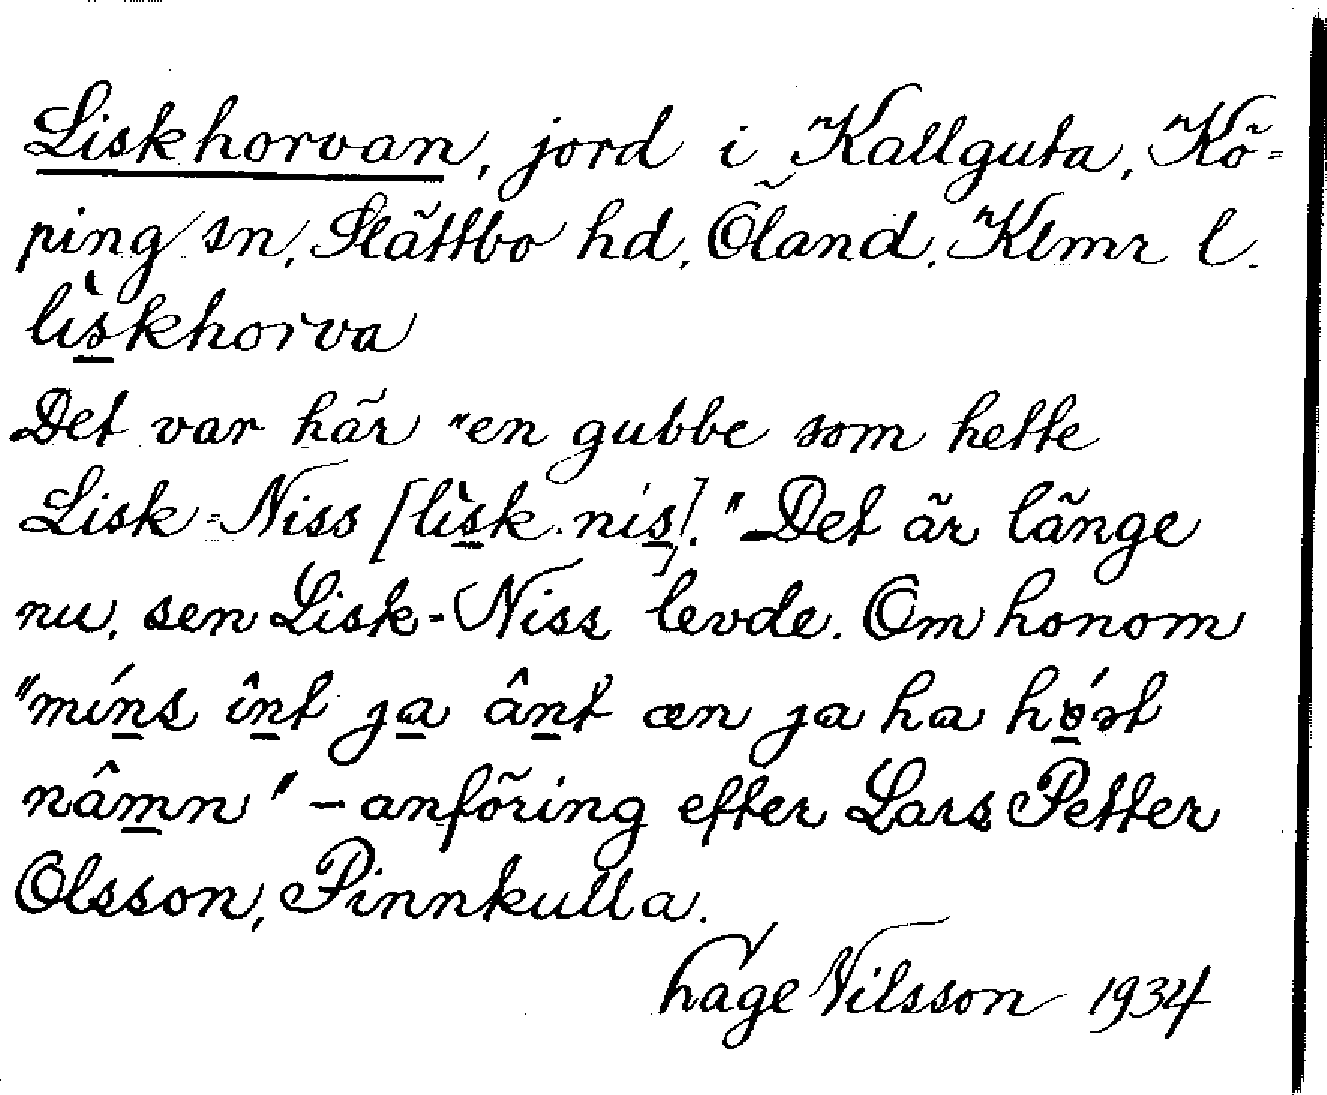 Liskhorvan, jord i Kallguta, Kö-
ping sn, Slättbo hd, Öland, Klmr l.
lìskhorva
Det var här "en gubbe som hette
Lisk-Niss [lìsk nís]." Det är länge
nu, sen Lisk-Niss levde. Om honom
"míns înt ja ânt æn ja ha hǿrt
nâmn" – anföring efter Lars Petter
Olsson, Pinnkulla.
Håge Nilsson 1934